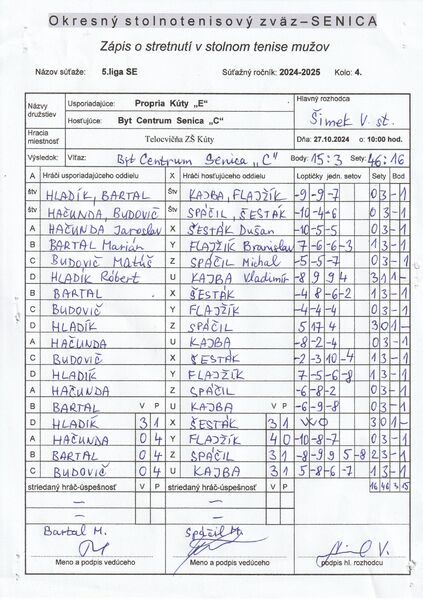 Okresný stolnotenisový zväz – SENICA
Zápis o stretnutí v stolnom tenise mužov
Názov súťaže: 5.liga SE Súťažný ročník: 2024-2025 Kolo: 4.
Názvy družstiev Usporiadajúce: Propria Kúty „E" Hlavný rozhodca
Hosťujúce: Byt Centrum Senica „C" Šimek V. st.
Hracia miestnosť Telocvičňa ZŠ Kúty Dňa: 27.10.2024 o 10:00 hod.
Výsledok: Víťaz: Byt Centrum Senica „C" Body: 15:3 Sety: 46:16
A Hráči usporiadajúceho oddielu X Hráči hosťujúceho oddielu Loptičky jedn. setov Sety Bod
štv HLADÍK, BARTAL Štv KAJBA, FLAJŽÍK -9 -9 -7 0 3 - 1
štv HAČUNDA, BUDOVIČ Štv SPÁČIL, ŠESTÁK -10 -4 -6 0 3 - 1
A HAČUNDA Jaroslav X ŠESTÁK Dušan -10 -5 -5 0 3 - 1
B BARTAL Marián Y FLAJŽÍK Branislav 7 -6 -6 -3 1 3 - 1
C BUDOVIČ Matúš Z SPÁČIL Michal -5 -5 -7 0 3 - 1
D HLADÍK Róbert U KAJBA Vladimír -8 9 9 4 3 1 1 -
B BARTAL X ŠESTÁK -4 8 -6 -2 1 3 - 1
C BUDOVIČ Y FLAJŽÍK -4 -4 -4 0 3 - 1
D HLADÍK Z SPÁČIL 5 17 4 3 0 1 -
A HAČUNDA U KAJBA -8 -2 -4 0 3 - 1
C BUDOVIČ X ŠESTÁK -2 -3 10 -4 1 3 - 1
D HLADÍK Y FLAJŽÍK 7 -5 -6 -8 1 3 - 1
A HAČUNDA Z SPÁČIL -6 -8 -2 0 3 - 1
B BARTAL V P U KAJBA V P -6 -9 -8 0 3 - 1
D HLADÍK 3 1 X ŠESTÁK 3 1 WO 3 0 1 -
A HAČUNDA 0 4 Y FLAJŽÍK 4 0 -10 -8 -7 0 3 - 1
B BARTAL 0 4 Z SPÁČIL 3 1 -8 -9 9 5 -8 2 3 - 1
C BUDOVIČ 0 4 U KAJBA 3 1 5 -8 -6 -7 1 3 - 1
striedaný hráč-úspešnosť V P striedaný hráč-úspešnosť V P 16 46 3 15
Bartal M. Spáčil M.
Šimek V.
Meno a podpis vedúceho Meno a podpis vedúceho podpis hl. rozhodcu